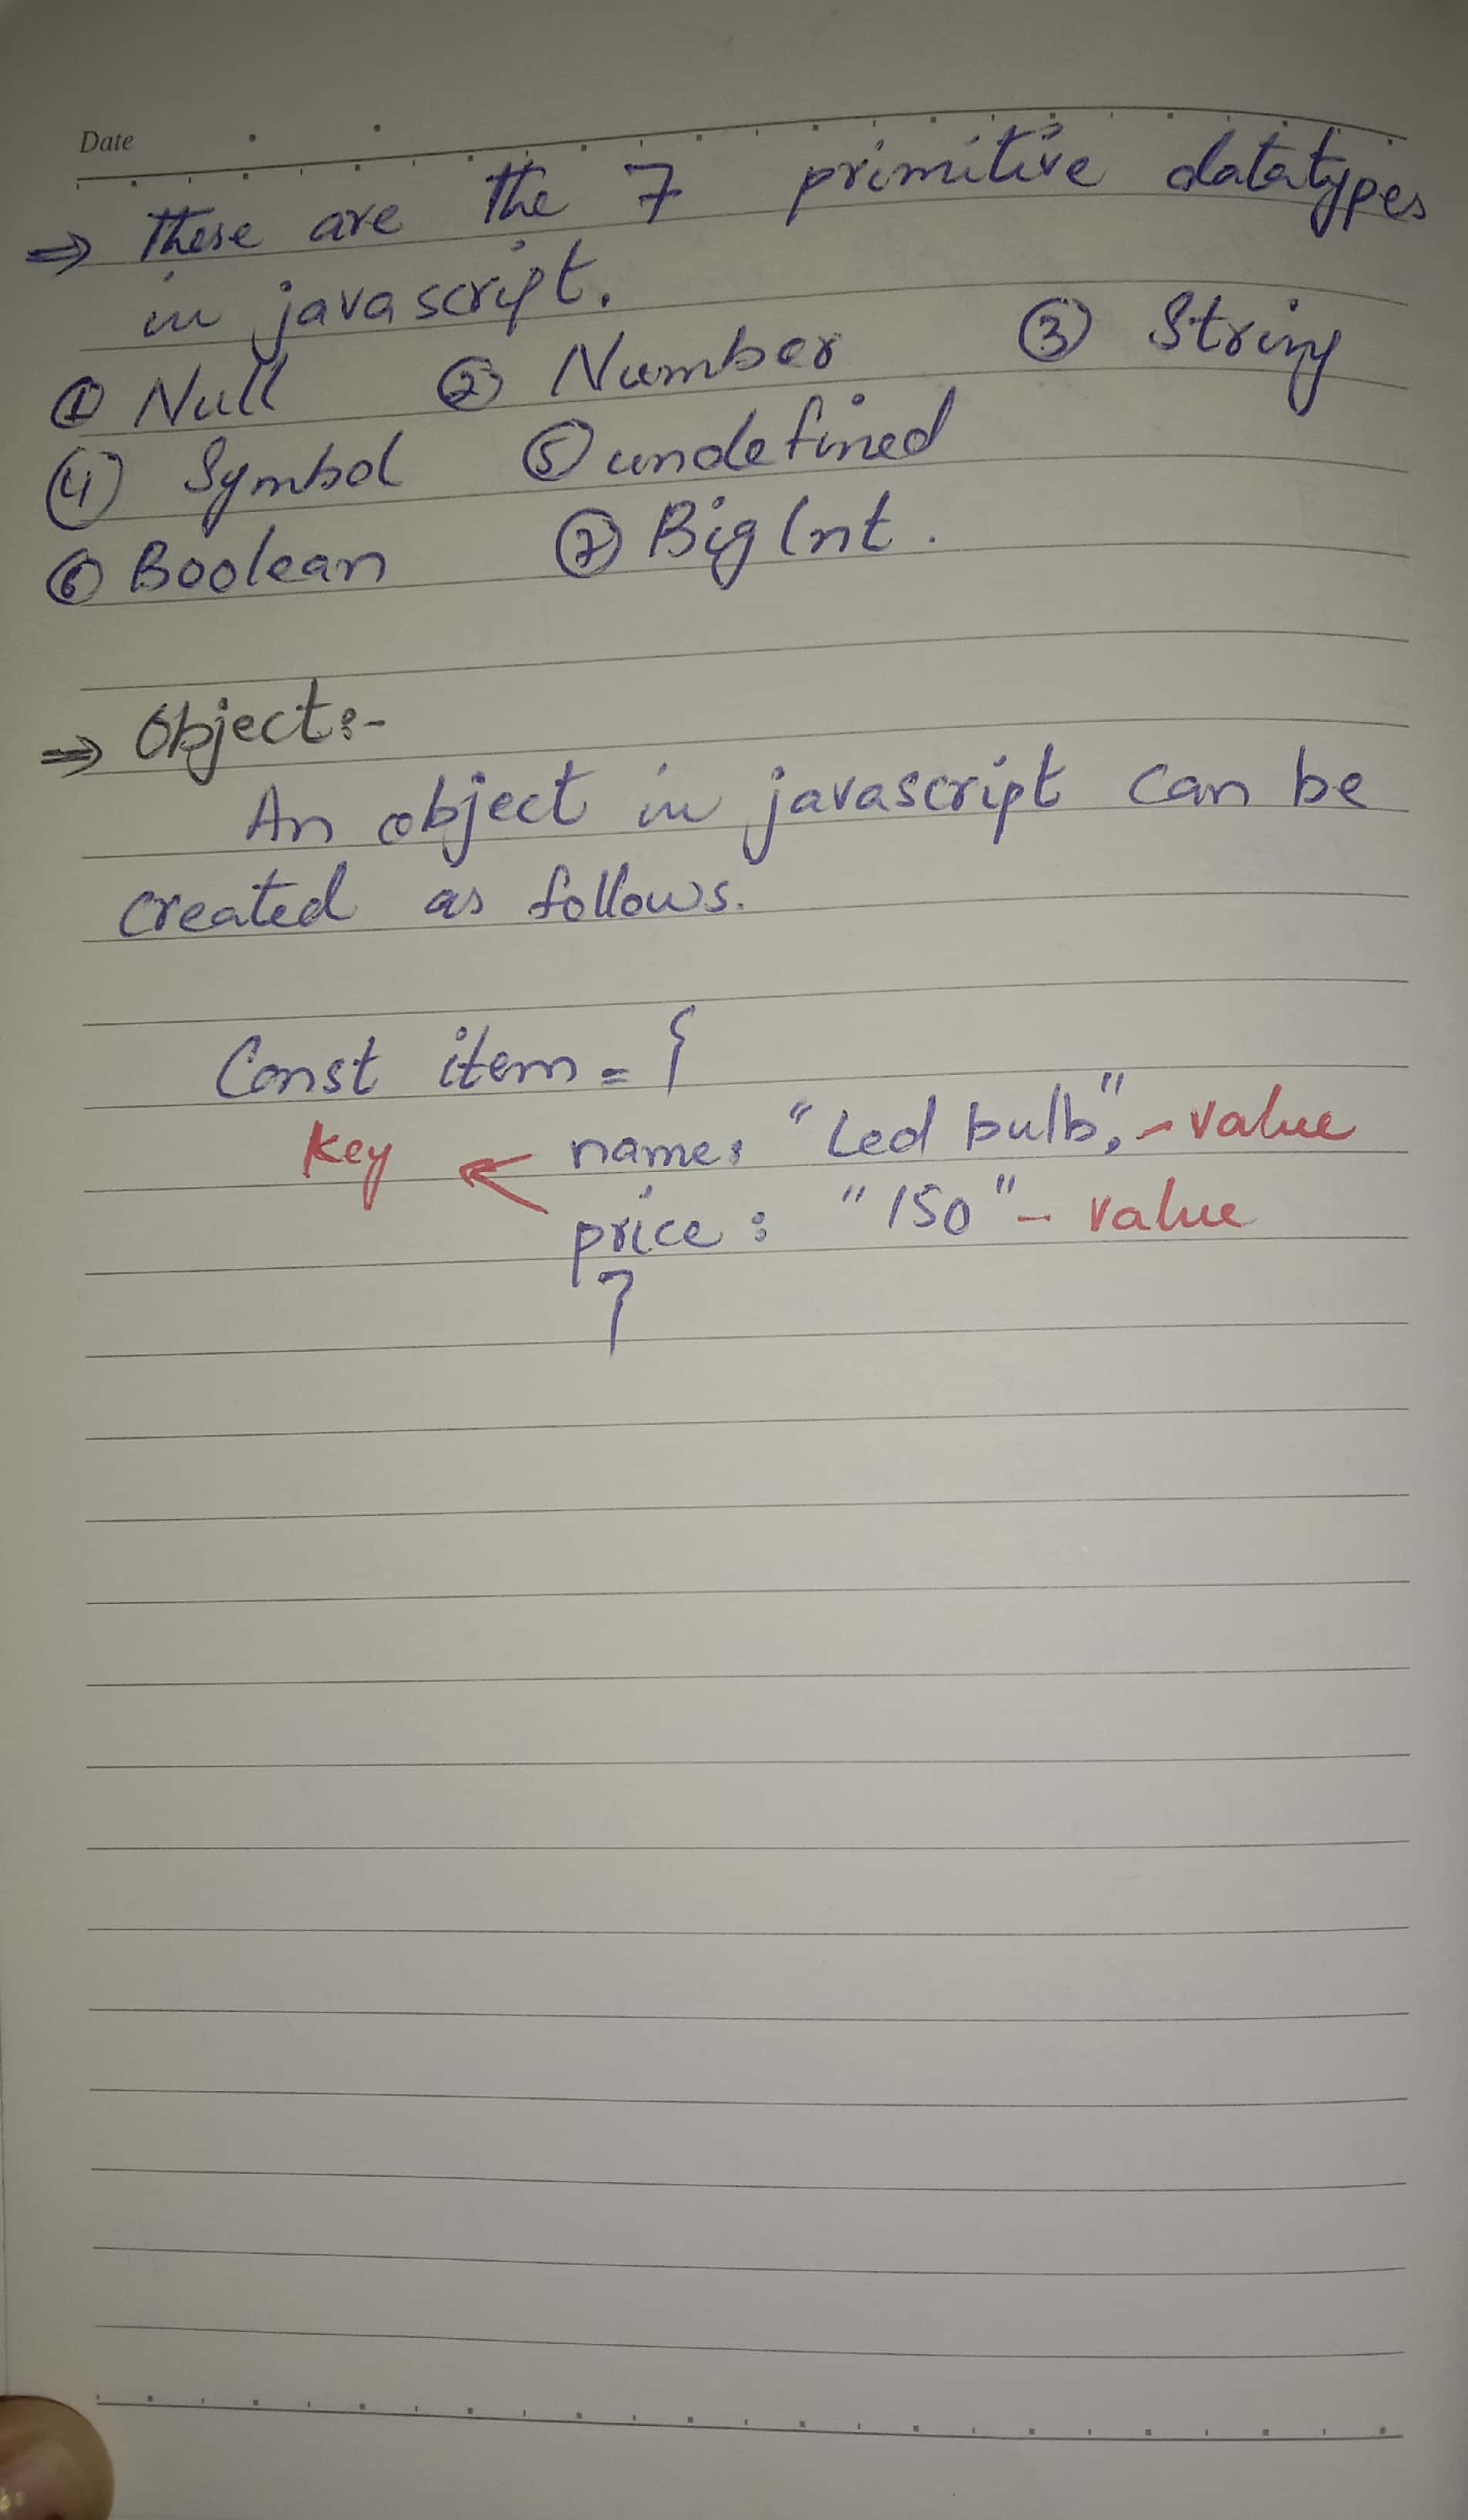 Date
⇒ These are the 7 primitive datatypes
in javascript.
① Null ② Number ③ String
④ Symbol ⑤ undefined
⑥ Boolean ⑦ BigInt.
⇒ Object:-
An object in javascript can be
created as follows.
Const item = {
key ← name: "Led bulb", - value
price: "150" - value
}